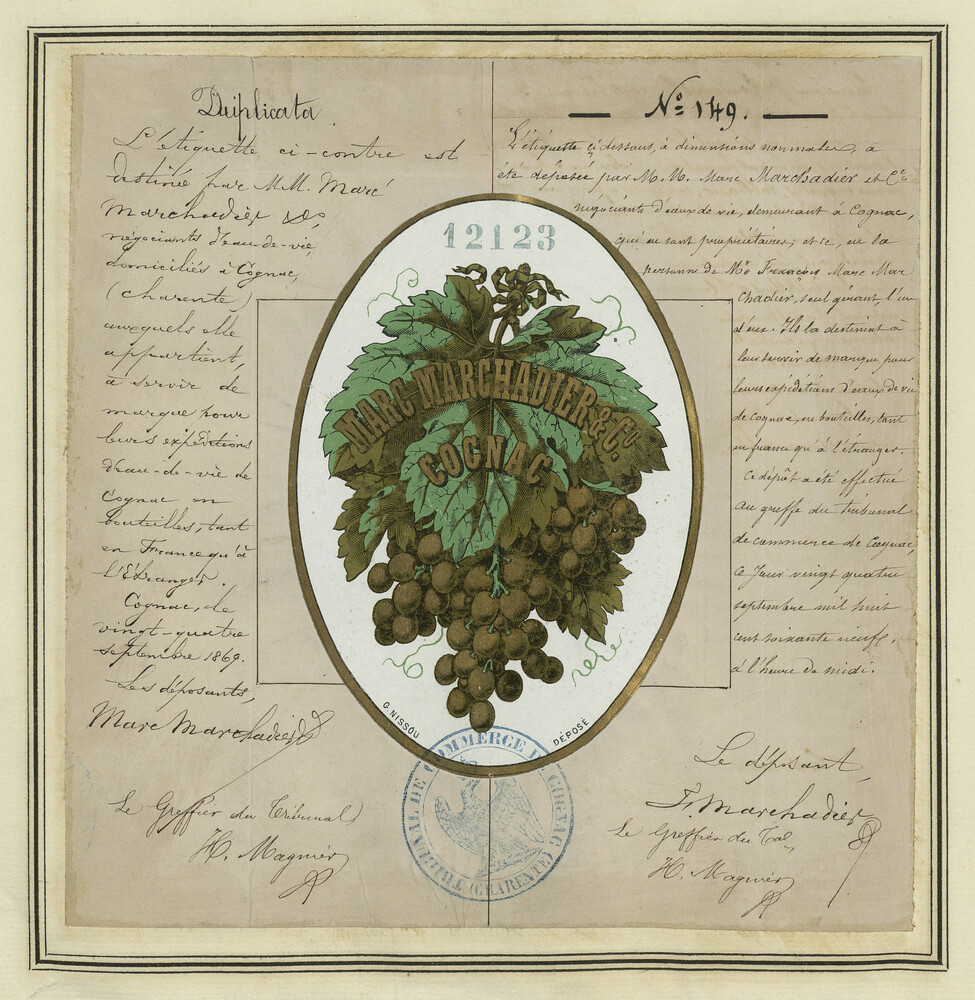 Duplicata
L'étiquette ci-contre est
destinée par M.M. Marc
Marchadier & Co,
négociants d'eau-de-vie,
domiciliés à Cognac,
(Charente)
auxquels elle
appartient,
à servir de
marque pour
leurs expéditions
d'eau-de-vie de
Cognac en
bouteilles, tant
en France qu'à
l'Etranger.
Cognac, le
vingt-quatre
septembre 1869.
Les déposants,
Marc Marchadier
Le Greffier du Tribunal
H. Magnier
No 149.
L'étiquette ci dessous, à dimensions normales, a
été déposée par M. M. Marc Marchadier et Cie
negociants d'eaux de vie, demeurant à Cognac,
qui en sont propriétaires; et ce, en la
personne de Mr François Marc Mar
chadier, seul gérant, l'un
d'eux. Ils la destinent à
leur servir de marque pour
leurs expéditions d'eaux de vie
de cognac, en bouteilles, tant
en france qu'à l'étranger.
Ce dépôt a été effectué
au greffe du tribunal
de commerce de Cognac,
ce jour vingt quatre
septembre mil huit
cent soixante neuf,
à l'heure de midi.
Le déposant,
F. Marchadier
Le Greffier du Tal,
H. Magnier
12123
MARC MARCHADIER & Co.
COGNAC
G. NISSOU
DÉPOSÉ
TRIBUNAL DE COMMERCE DE COGNAC
(CHARENTE)